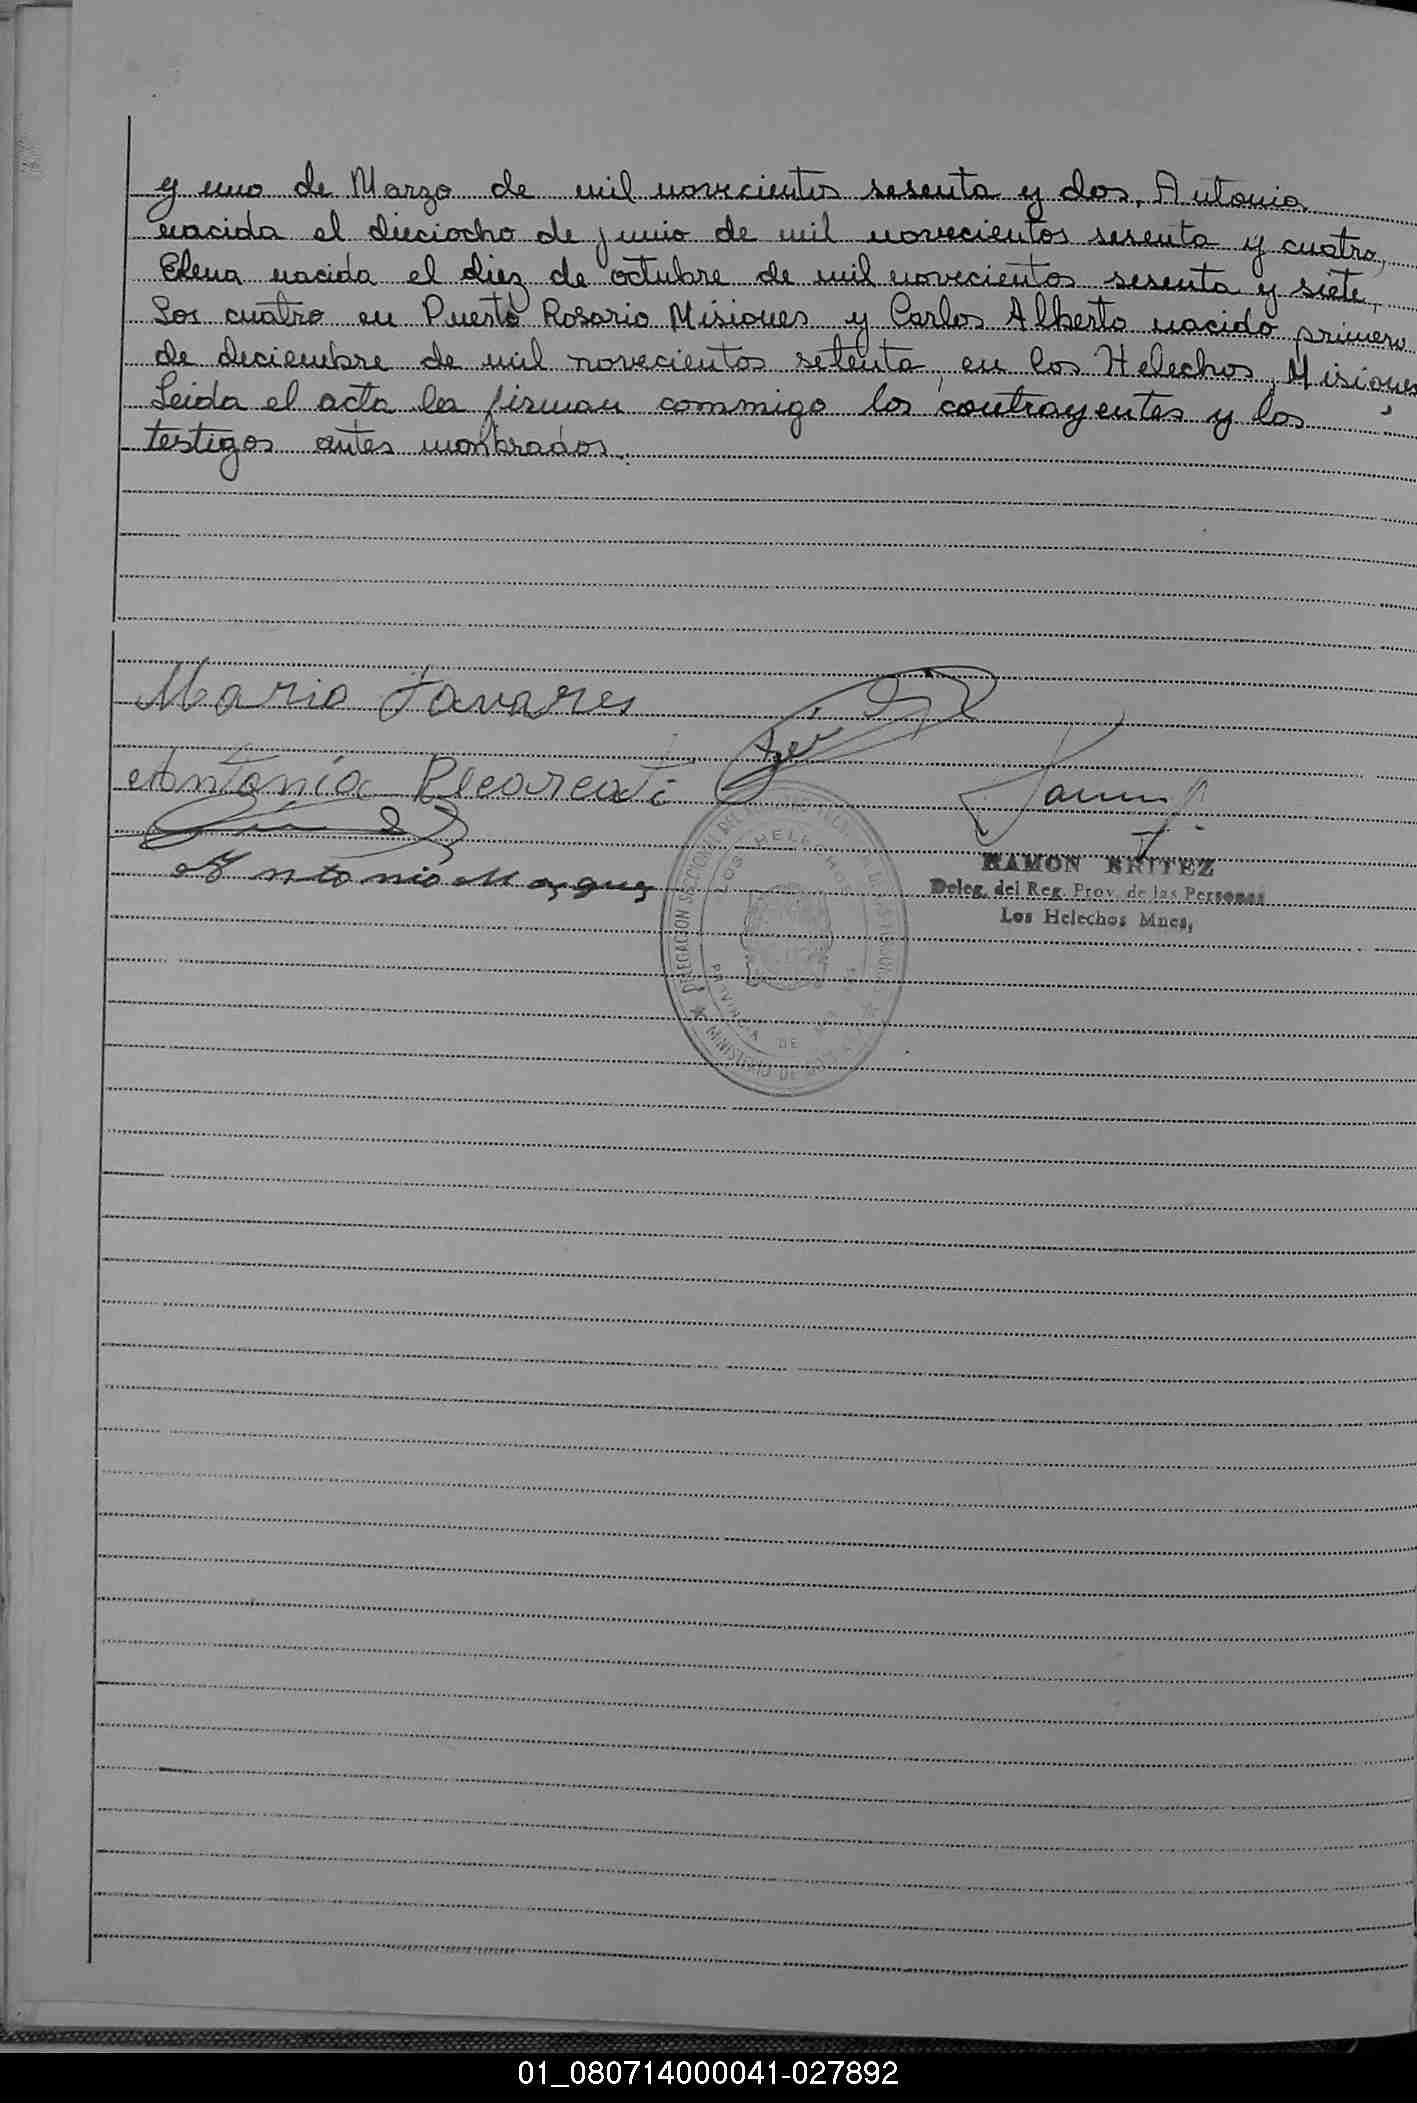 y uno de Marzo de mil novecientos sesenta y dos, Antonia
nacida el dieciocho de junio de mil novecientos sesenta y cuatro,
Elena nacida el diez de octubre de mil novecientos sesenta y siete,
Los cuatro en Puerto Rosario Misiones y Carlos Alberto nacido primero
de deciembre de mil novecientos setenta, en los Helechos, Misiones
Leida el acta la firman commigo los contrayentes y los
testigos antes mombrados.
Mario Tavares
Antonia
Antonio Marquez
LOS HELECHOS
DELEGACION SECCIONAL DEL
PROVINCIA DE
RAMON BRITEZ
Deleg. del Reg. Prov. de las Personas
Los Helechos Mnes,
01_080714000041-027892